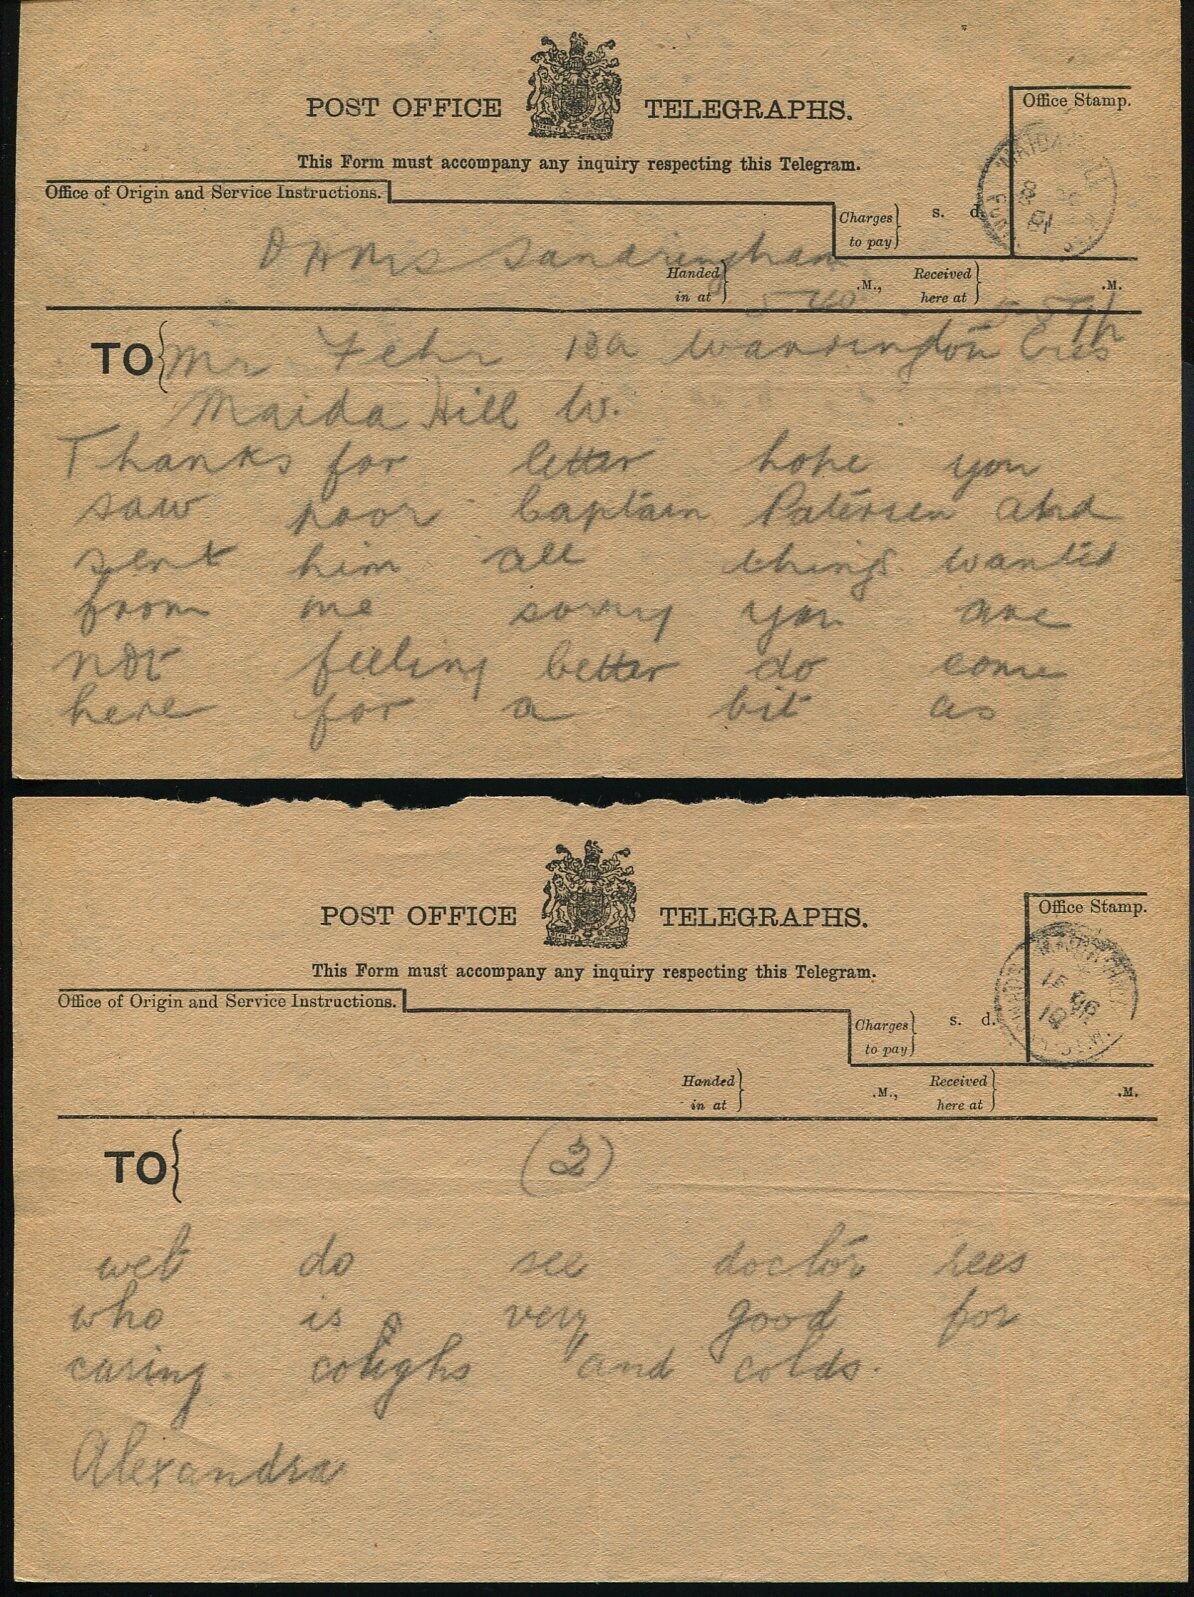 POST OFFICE TELEGRAPHS.
Office Stamp.
This Form must accompany any inquiry respecting this Telegram.
Office of Origin and Service Instructions.
Charges to pay } s. d.
OHMS Sandringham
Handed in at } .M., Received here at } .M.
TO { Mr Fehr 13a Warrington Cres
Maida Hill W.
Thanks for letter hope you
saw poor Captain Petersen and
sent him all things wanted
from me sorry you are
not feeling better do come
here for a bit as
POST OFFICE TELEGRAPHS.
Office Stamp.
This Form must accompany any inquiry respecting this Telegram.
Office of Origin and Service Instructions.
Charges to pay } s. d.
Handed in at } .M., Received here at } .M.
TO { (2)
wet do see doctor rees
who is very good for
curing coughs and colds.
Alexandra